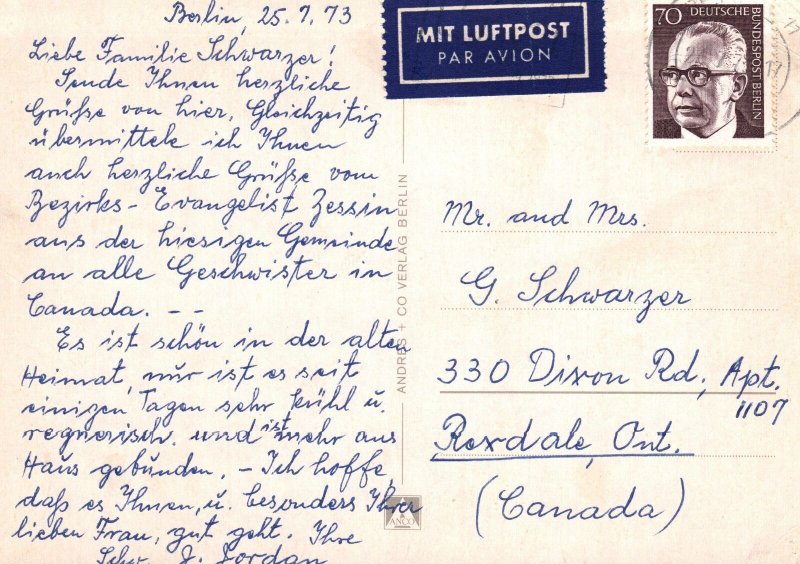 Berlin, 25.7.73
Liebe Familie Schwarzer!
Sende Ihnen herzliche
Grüße von hier. Gleichzeitig
übermittele ich Ihnen
auch herzliche Grüße vom
Bezirks-Evangelist Zessin
aus der hiesigen Gemeinde
an alle Geschwister in
Canada. - -
Es ist schön in der alten
Heimat, nur ist es seit
einigen Tagen sehr kühl u.
regnerisch, und ist mehr ans
Haus gebunden. - Ich hoffe,
daß es Ihnen, u. besonders Ihrer
lieben Frau, gut geht. Ihre
Schw. J. Jordan
MIT LUFTPOST
PAR AVION
70 DEUTSCHE
BUNDESPOST BERLIN
17
ANDRES + CO VERLAG BERLIN
ANCO
Mr. and Mrs.
G. Schwarzer
330 Dixon Rd., Apt.
1107
Rexdale, Ont.
(Canada)